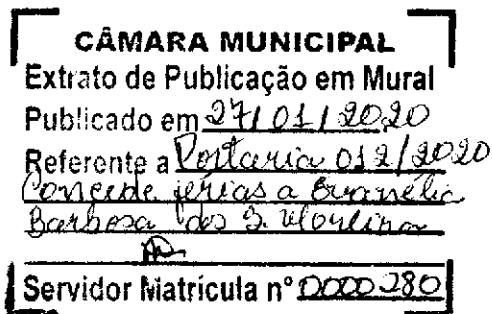 CÂMARA MUNICIPAL
Extrato de Publicação em Mural
Publicado em 27/01/2020
Referente a Portaria 012/2020
Concede férias a
Barbosa dos S.
Servidor Matrícula nº 0000280